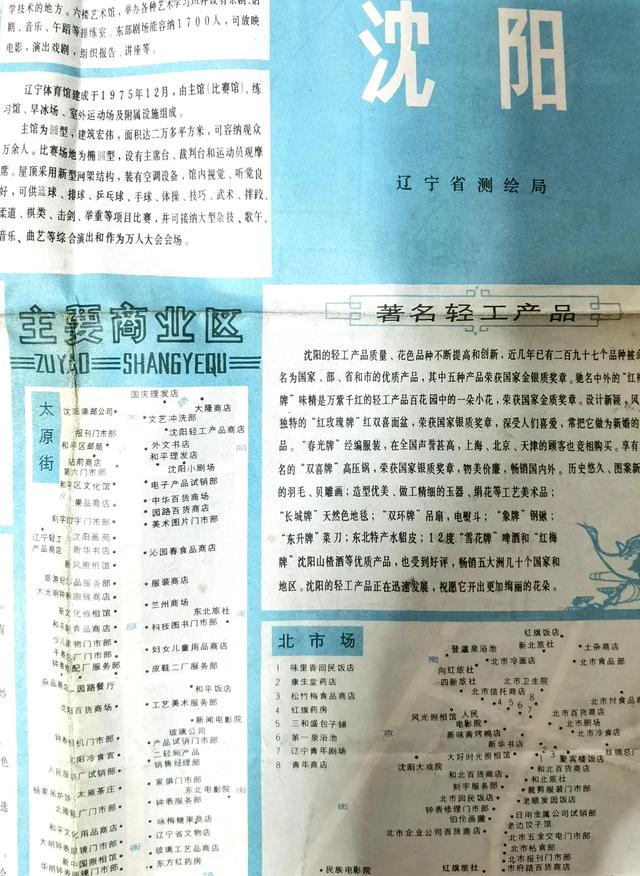 学技术的地方。六楼艺术馆，举办各种艺术学习班并设有京剧、话
剧、音乐、午蹈等排练室。东部剧场能容纳1700人，可放映
电影，演出戏剧，组织报告、讲座等。
辽宁体育馆建成于1975年12月，由主馆(比赛馆)、练
习馆、旱冰场、室外运动场及附属设施组成。
主馆为圆型，建筑宏伟，面积达二万多平方米，可容纳观众
万余人。比赛场地为椭圆型，设有主席台、裁判台和运动员观摩
席。屋顶采用新型网架结构，装有空调设备，馆内视觉、听觉良
好，可供篮球、排球、乒乓球、手球、体操、技巧、武术、摔跤、
柔道、棋类、击剑、举重等项目比赛，并可接纳大型杂技、歌午、
音乐、曲艺等综合演出和作为万人大会会场。
沈阳
辽宁省测绘局
主要商业区
ZUYAO SHANGYEQU
太原街
国庆理发店
沈阳集邮公司
大隆商店
文艺冲洗部
报刊门市部
沈阳轻工产品商店
和平区邮局
外文书店
和平理发店
站前商店
沈阳小剧场
第六门市部
和平区文化馆
电子产品试销部
果品商店
中华百货商场
园路百货商店
刻字印字门市部
美术图片门市部
沈阳画苑
辽宁轻工产品商店
新华书店
沁园春食品商店
新风照相馆
服装商店
大光明钟表眼镜商店
兰州商场
新文化照相馆
东北旅社
和平副食品商店
科技图书门市部
妇女儿童用品商店
钟表修配厂服务部
皮鞋二厂服务部
杂品商店
园路餐厅
和平饭店
沈阳百货商场
工艺美术服务部
新闻电影院
玻璃公司
产品试销门市部
二轻局产品
销售经理部
沈阳冷食宫
家俱门市部
太原茶庄
东北电影院
杨家吊炉饼
钟表服务部
咏梅糖果商店
和平文化用品商店
辽宁省文物店
玻璃工艺品商店
新中国照相馆
东方红药房
著名轻工产品
沈阳的轻工产品质量、花色品种不断提高和创新，近几年已有二百九十七个品种被命
名为国家、部、省和市的优质产品，其中五种产品荣获国家金银质奖章。驰名中外的“红梅
牌”味精是万紫千红的轻工产品百花园中的一朵小花，荣获国家金质奖章。设计新颖，风
独特的“红玫瑰牌”红双喜面盆，荣获国家银质奖章，深受人们喜爱，常把它做为新婚的
品。“春光牌”经编服装，在全国声誉甚高，上海、北京、天津的顾客也竞相购买。享有
名的“双喜牌”高压锅，荣获国家银质奖章，物美价廉，畅销国内外。历史悠久、图案新
的羽毛、贝雕画；造型优美、做工精细的玉器、绢花等工艺美术品；
“长城牌”天然色地毯；“双环牌”吊扇，电熨斗；“象牌”钢锹；
“东升牌”菜刀；东北特产水貂皮；12度“雪花牌”啤酒和“红梅
牌”沈阳山楂酒等优质产品，也受到好评，畅销五大洲几十个国家和
地区。沈阳的轻工产品正在迅速发展，祝愿它开出更加绚丽的花朵。
北市场
1 味里香回民饭店
2 康生堂药店
3 松竹梅食品商店
4 红旗药房
5 三和盛包子铺
6 第一泉浴池
7 辽宁青年剧场
8 青年商店
红旗饭店
登瀛泉浴池
新北旅社
土杂商店
南
北市冷面店
北市食品部
向红旅社
四新旅社
北市卫生院
北市信托商店
4 5 6 7 8
北市付食品商
风光照相馆
人民电影院
北市百货商店
北市剧场
京
新味斋烤鸭店
北市冷食店
新华书店
1 2 3
丝绸总厂
大好时光照相馆
聚宾楼饭店
沈阳大戏院
和北百货商店
和北旅社
刻字服务部
裁剪服装门市部
北市回民饭店
老顺发园饭店
街
钟表修理门市部
日用金属公司试销部
伯伦画圃
老边饺子馆
北市企业公司百货商店
北市五金交电门市部
北市粘食部
北市报刊门市部
民族电影院
红旗旅社
市府路百货商店